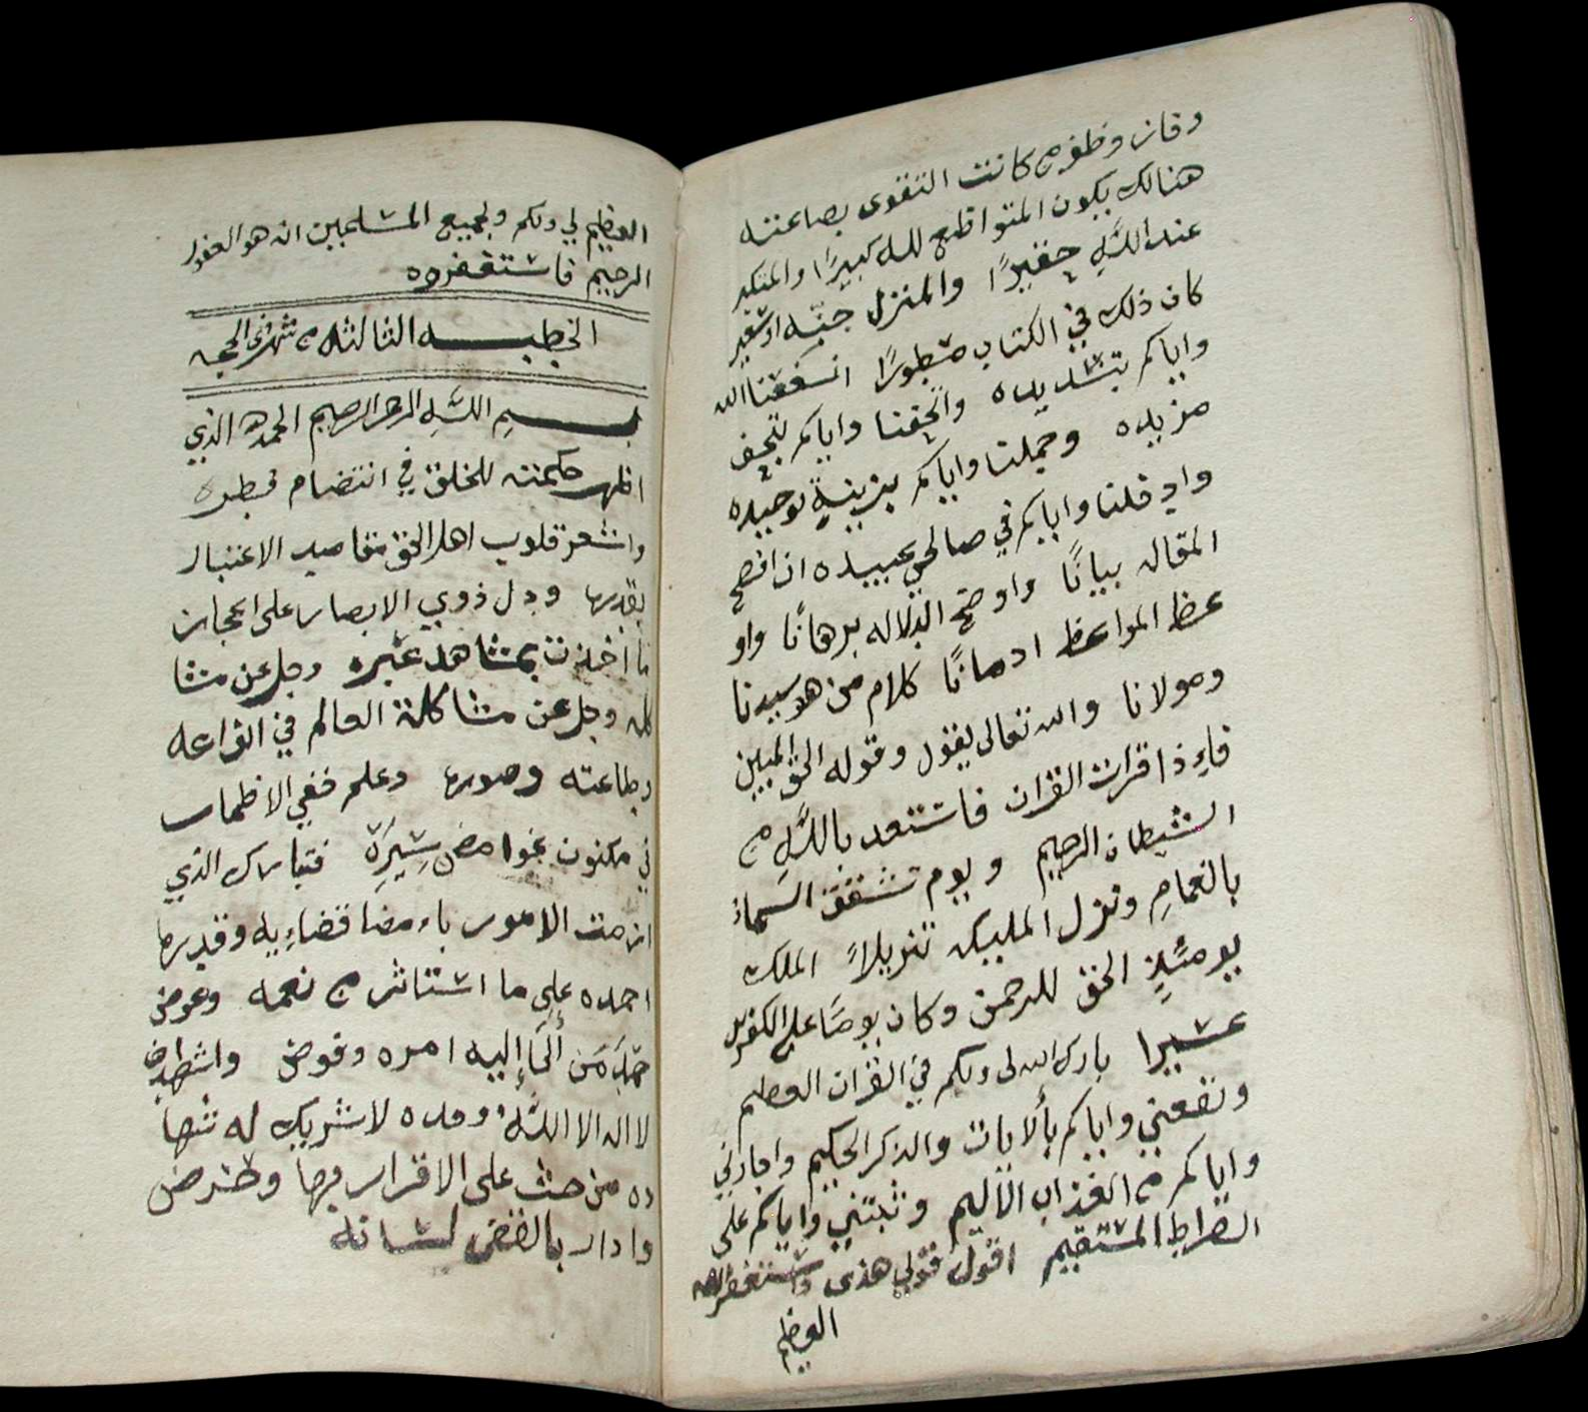 وفاز وظفر من كانت التقوى بضاعته
هنالك يكون المتواضع لله كبيرًا والمتكبر
عند اللَّهِ حقيرًا والمنزل جنّه اوسعير
كان ذلك في الكتاب مسطورًا اسعفنا الله
واياكم بتسديده واتحفنا واياكم بتحف
مزيده وجملنا واياكم بزينةِ توحيده
وادخلنا واياكم في صالحي عبيده ان افصح
المقال بيانًا واوضح الدلاله برهانًا واو
عظ المواعظ ادمانًا كلام من هو سيدنا
ومولانا والله تعالى يقول وقوله الحق المبين
فاءِذا قرات القران فاستعد باللَّهِ من
الشيطان الرجيم ويوم تشقق السماءُ
بالغمامِ ونزل المليكه تنزيلاً الملك
يومئذٍ الحق للرحمن وكان يومًا على الكفرين
عسيرا بارك الله لي ولكم في القران العظيم
ونفعني واياكم بألايات والذكر الحكيم واجارني
واياكم من العذاب الاليم وثبتني واياكم على
الصراط المستقيم اقول قولي هذى واستغفر الله
العظيم
العظيم لي ولكم ولجميع المسلمين انه هو الغفور
الرحيم فاستغفروه
الخطبه الثالثه من شهر ذي الحجه
بسمِ اللَّهِ الرحمن الرحيم الحمد لله الذي
اظهر حكمته للخلق في انتضام فطره
واشعر قلوب اهل الحق مقاصد الاعتبار
بقدرها ودل ذوي الابصار على اعجاز
ما اخذت بمشاهد عبره وجل عن مشا
كله وجل عن مشاكلة العالم في
بطاعته وصورها وعلم خفي
في مكنون غوامض سِيَرِهِ فتبارك الذي
ازمت الامور باءمضا قضاءِيه وقدرها
احمده على ما استاثر من نعمه وعوض
حمدَ مَن أَلجَاءَ إليه امره وفوض واشهد ان
لا اله الا اللَّهُ وحده لا شريك له شها
ده من حث على الاقرار بها وحرض
وادار بالفض لسانه